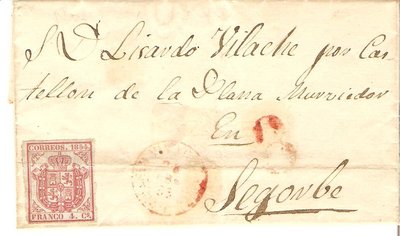 S. D. Lisardo Vilache por Cas
tellon de la Plana Murviedor
En
Segorbe
CORREOS. 1854.
FRANCO 4. Cs.